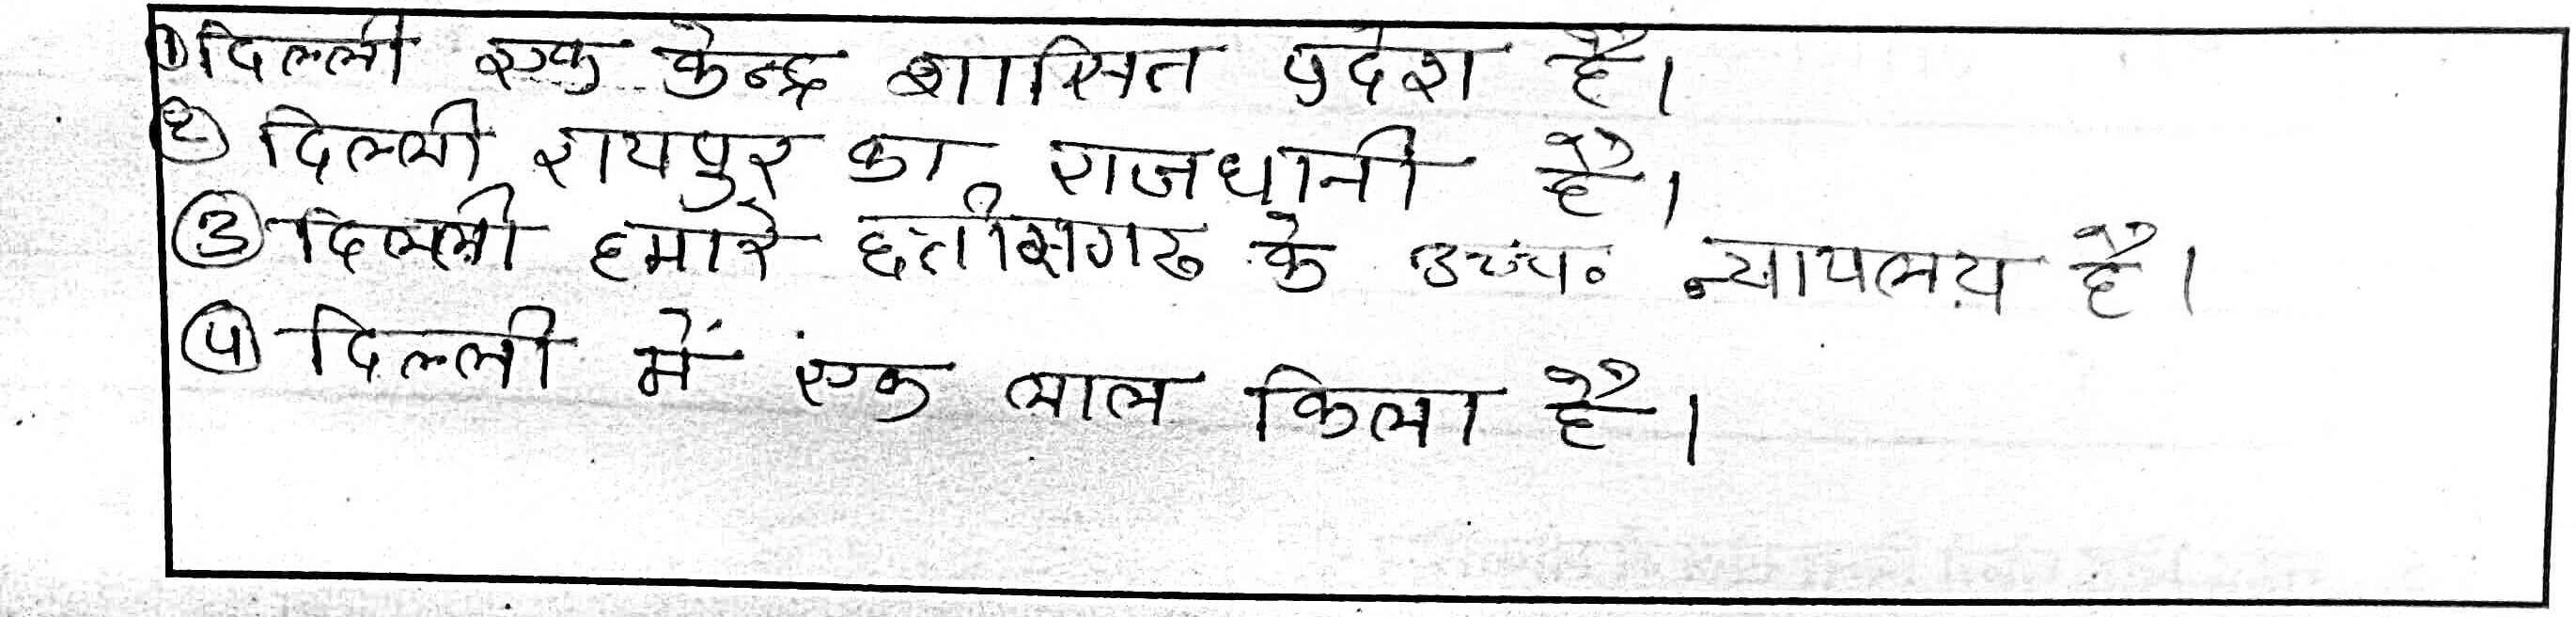 ① दिल्ली एक केन्द्र शासित प्रदेश है।
② दिल्ली रायपुर का राजधानी है।
③ दिल्ली हमारे छत्तीसगढ के उच्च॰ न्यायलय है।
④ दिल्ली में एक लाल किला है।